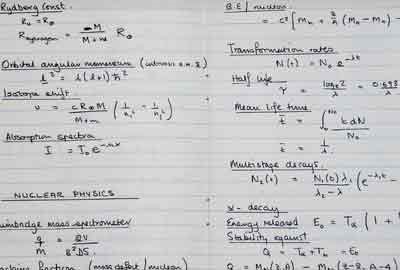 Rydberg Const.
R∞ = R∞
R hydrogen = M / (M + m) R∞
Orbital angular momentum
l² = l(l+1)ħ²
Isotope shift.
ν = cR∞M / (M+m) (1/n₁² - 1/n₂²)
Absorption spectra
I = I₀ e^-nαx
NUCLEAR PHYSICS
Bainbridge mass spectrometer
q/m = 2V / B²DS
fraction (mass defect / nucleon)
B.E / nucleon
= c² [Mn + Z/A (MH - Mn) -
Transformation rates
N(t) = N₀ e^-λt
Half life
τ = loge2 / λ = 0.693 / λ
Mean life time
t̄ = ∫₀^N₀ t dN / N₀
t̄ = 1/λ
Multistage decays.
N₂(t) = N₁(0)λ₁ / (λ₂ - λ) (e^-λ₁t -
α - decay
Energy released E₀ = Tα (1 +
Stability against
Q = Tα + Tb = E₀
Q = Mn(Z,A) - Mn(Z-2, A-4)